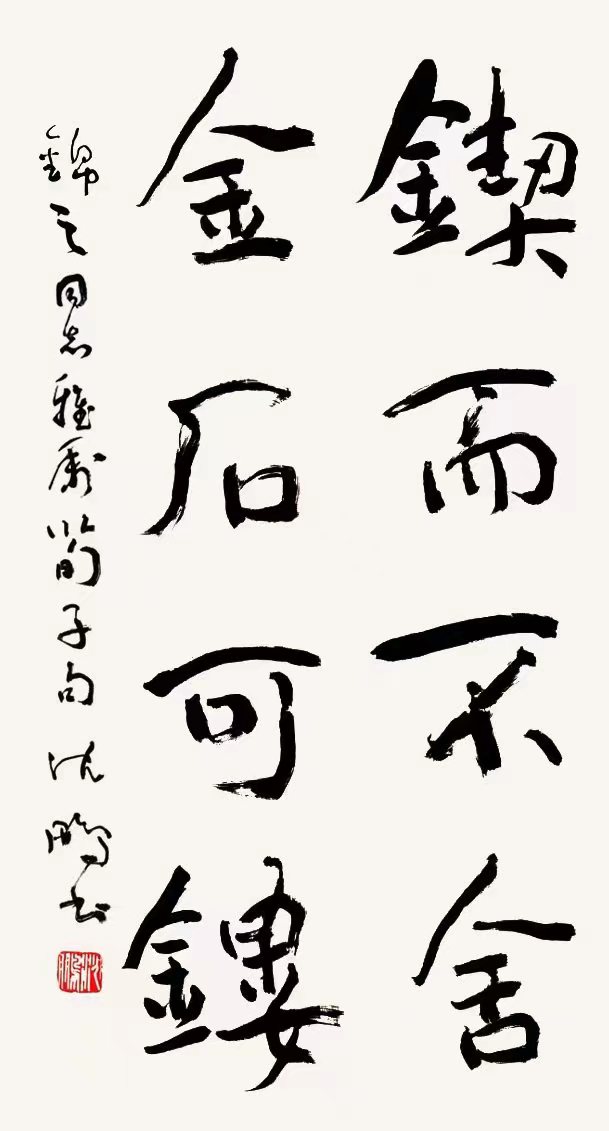 鍥而不舍
金石可鏤
錦之同志雅属荀子句沈鵬书
沈鵬